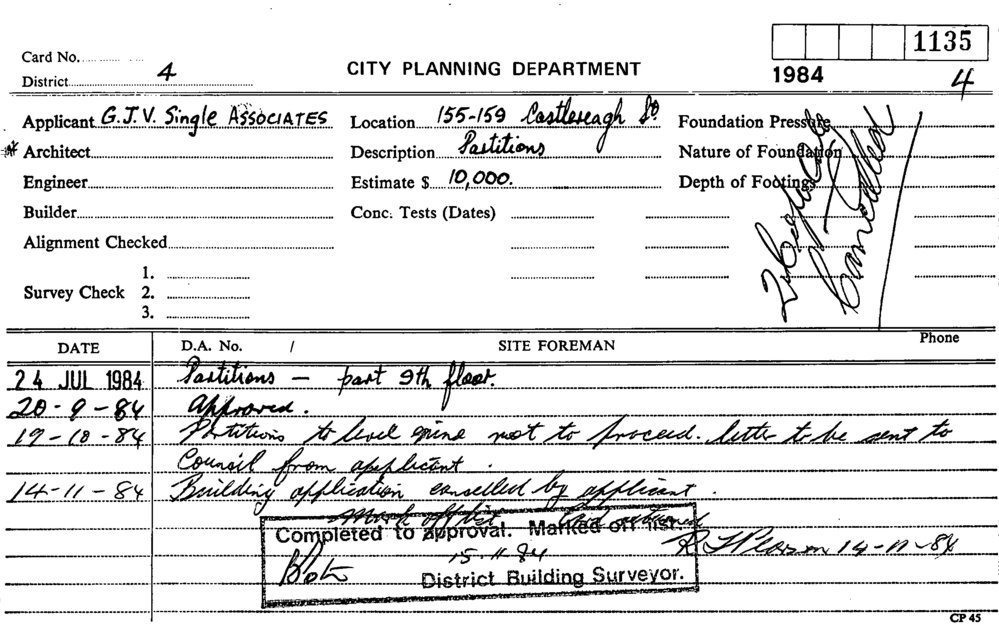 1135
Card No.
CITY PLANNING DEPARTMENT
1984
4
District 4
Applicant G.J.V. Single ASSOCIATES
Location 155-159 Castlereagh St
Foundation Pressure
Architect
Description Partitions
Nature of Foundation
Engineer
Estimate $ 10,000.
Depth of Footings
Builder
Conc. Tests (Dates)
Alignment Checked
Survey Check 1.
2.
3.
Cancelled
DATE
D.A. No. /
SITE FOREMAN
Phone
24 JUL 1984 Partitions — part 9th floor.
20-9-84 Approved.
19-10-84 Partitions to level nine not to proceed. letter to be sent to
Council from applicant.
14-11-84 Building application cancelled by applicant.
Mark off list
Completed to approval. Marked off list.
15.11.84
14-11-84
District Building Surveyor.
CP 45